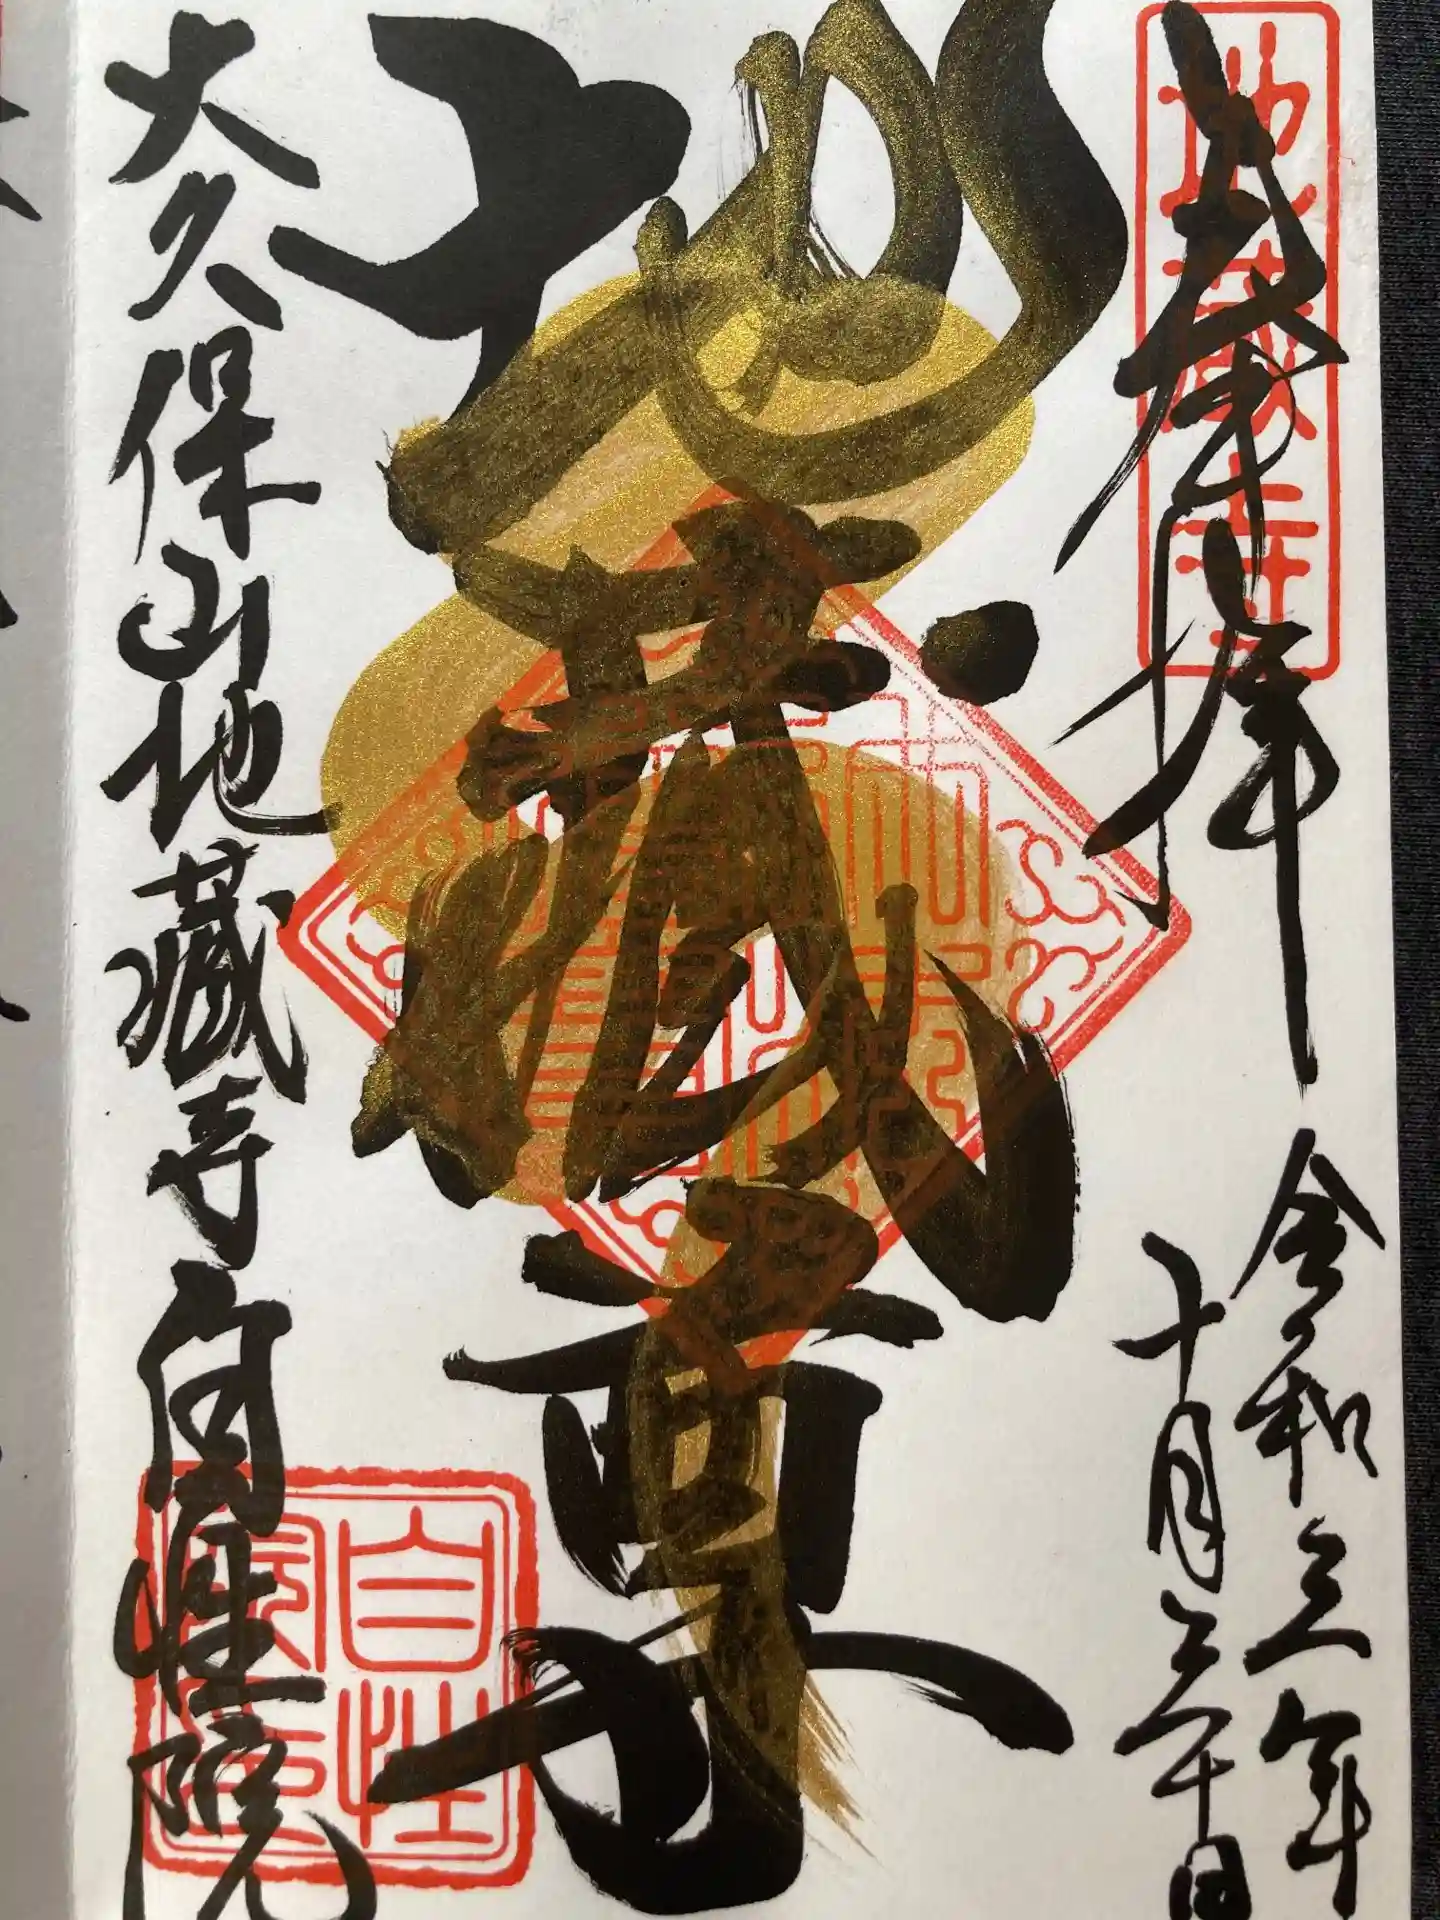 奉拝
地蔵寺
令和三年
十月三十日
地蔵尊
大久保山地蔵寺自性院
自性院印